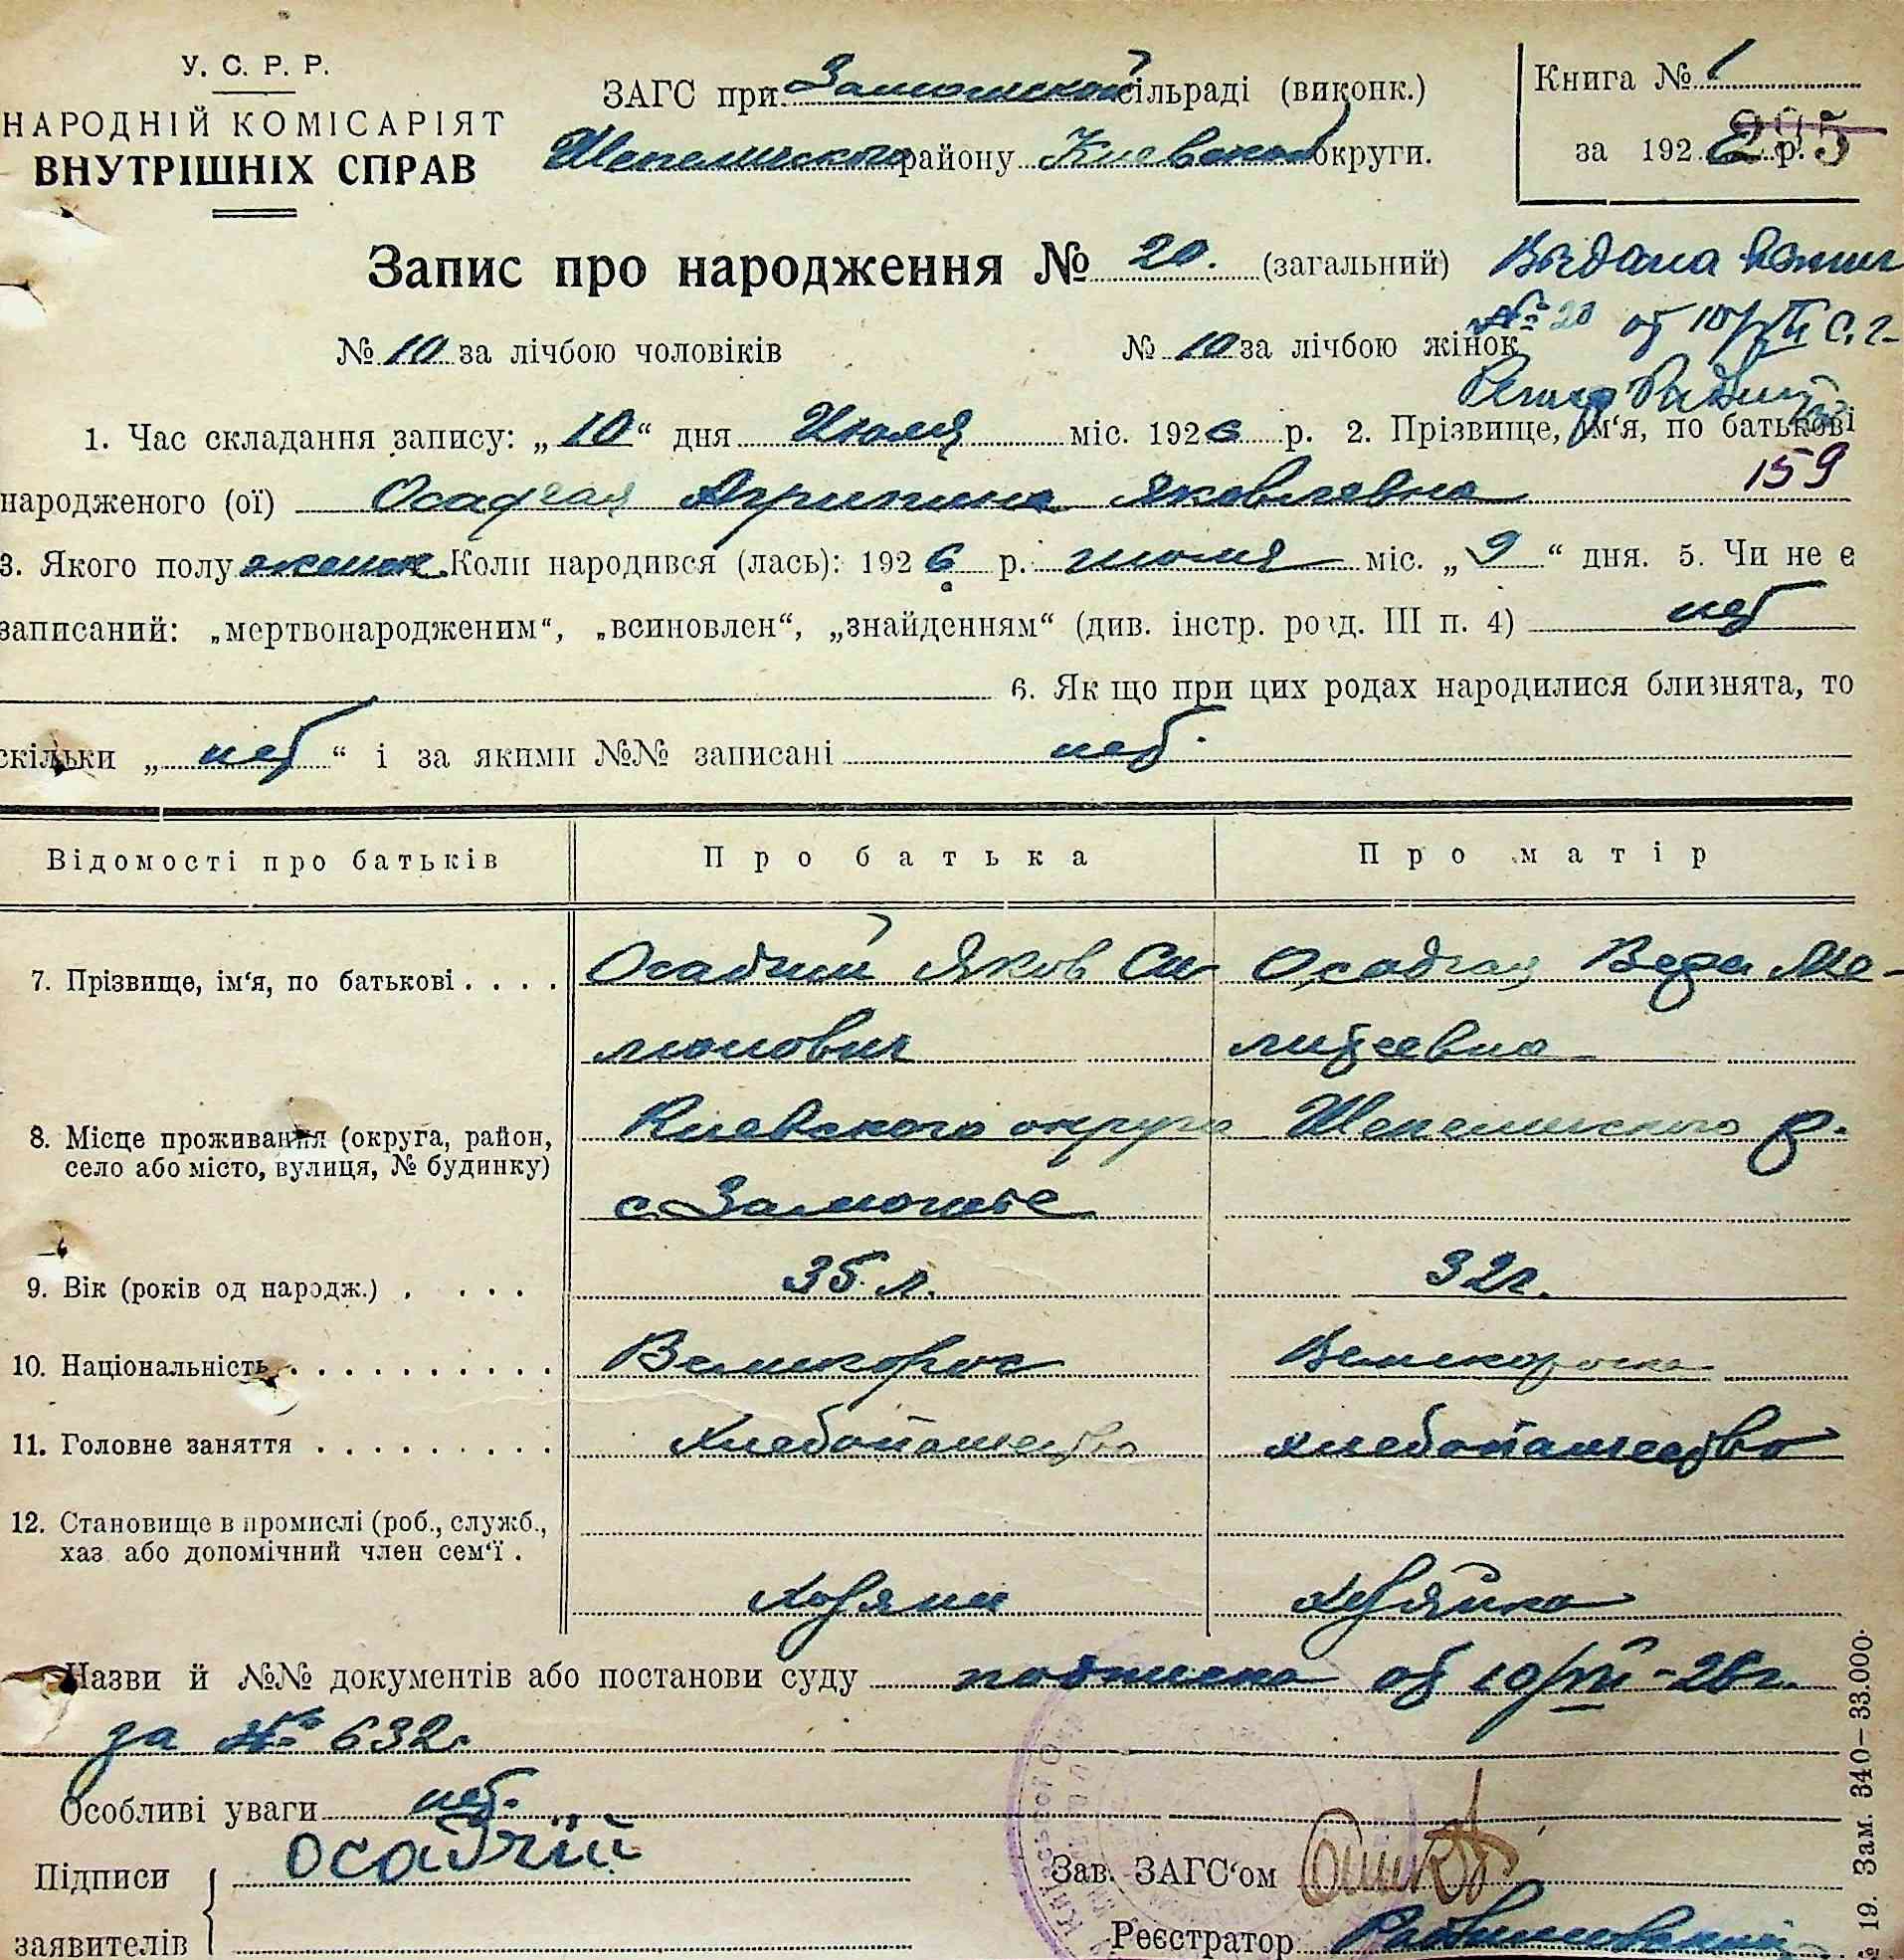 У. С. Р. Р.
НАРОДНІЙ КОМІСАРІЯТ
ВНУТРІШНІХ СПРАВ
ЗАГС при Замошской сільраді (виконк.)
Шепеличского району Киевской округи.
Книга № 1
за 1926 р.
295
Запис про народження № 20. (загальний)
Видана
№ 20 от 10/VII с. г.
№ 10 за лічбою чоловіків № 10 за лічбою жінок
1. Час складання запису: „10“ дня Июля міс. 1926 р. 2. Прізвище, ім‘я, по батькові
159
народженого (ої) Осадчая Агрипина Яковлевна
3. Якого полу женск. Коли народився (лась): 1926 р. июля міс. „9“ дня. 5. Чи не є
записаний: „мертвонародженим“, „всиновлен“, „знайденням“ (див. інстр. розд. III п. 4) нет
6. Як що при цих родах народилися близнята, то
скільки „нет“ і за якими №№ записані нет.
Відомості про батьків Про батька Про матір
7. Прізвище, ім‘я, по батькові . . . . Осадчий Яков Си Осадчая Вера Ме-
монович литеевна
8. Місце проживання (округа, район, Киевского округа Шепеличского р.
село або місто, вулиця, № будинку)
с. Замошье
9. Вік (років од народж.) . . . . 35 л. 32 г.
10. Національність . . . . . . . . . . Великорос Великороска
11. Головне заняття . . . . . . . . . Хлебопашество хлебопашество
12. Становище в промислі (роб., служб.,
хаз або допомічний член сем‘ї .
Хозяин Хозяйка
Назви й №№ документів або постанови суду подписка от 10/VII-26 г.
за № 632.
Особливі уваги нет.
Підписи осадчій
заявителів
Зав. ЗАГС‘ом
Реєстратор
19. Зам. 340—33.000.